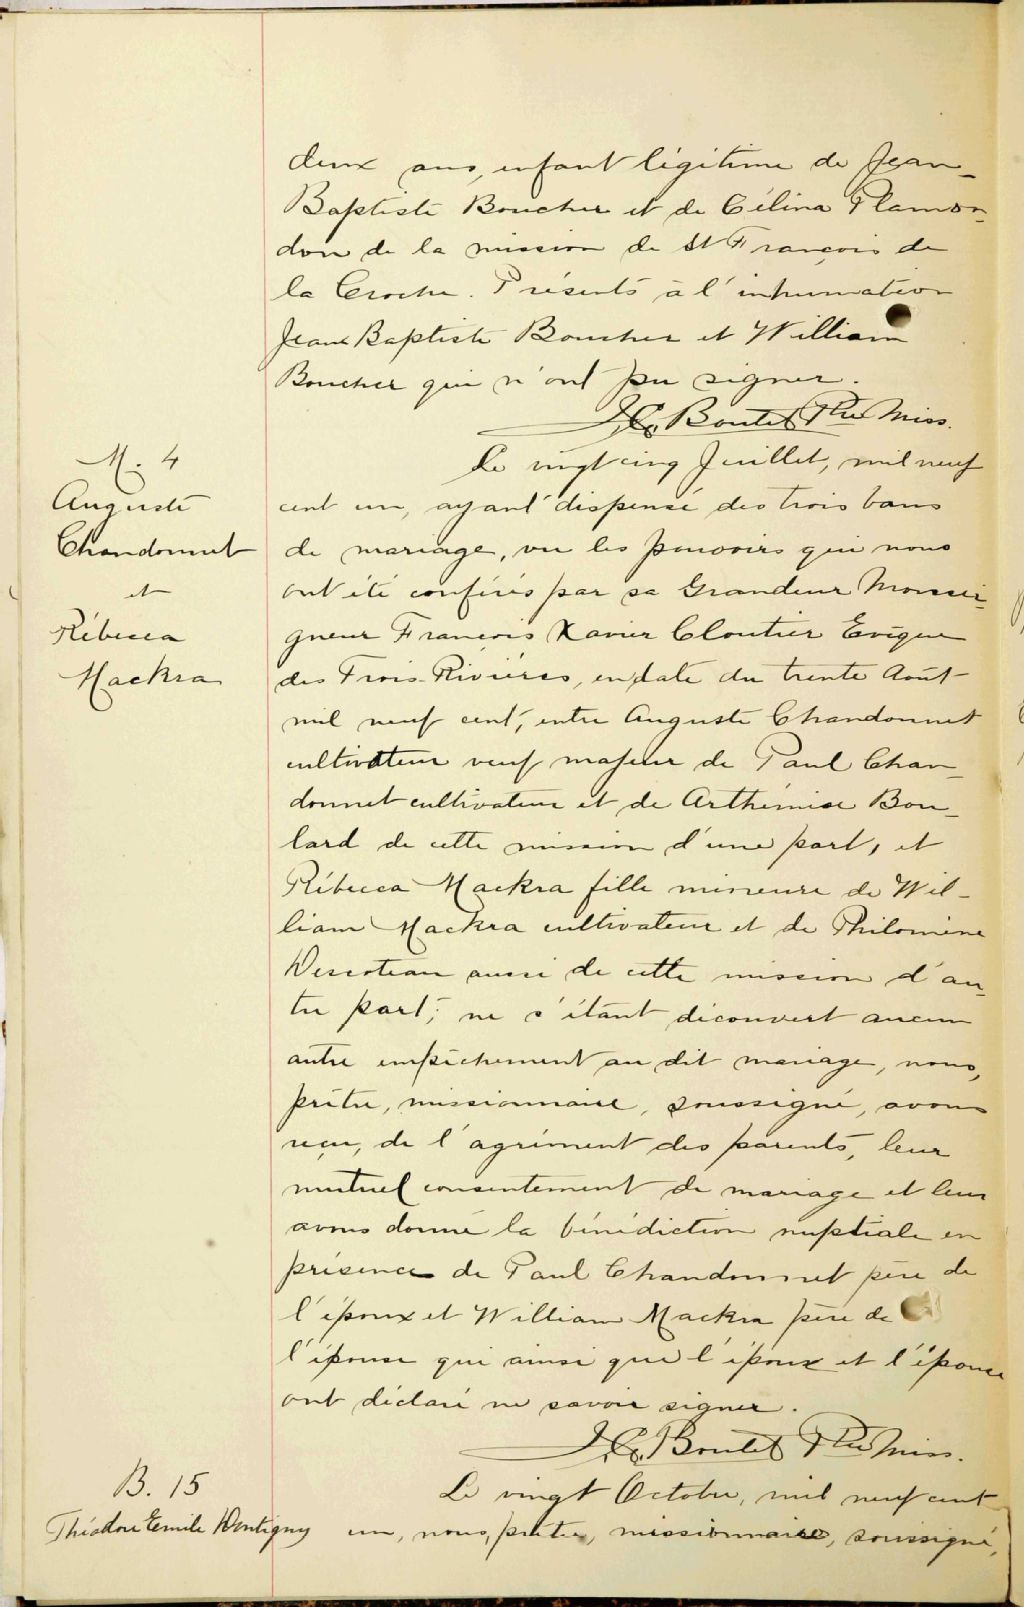 deux ans, enfant légitime de Jean-
Baptiste Boucher et de Célina Plamon-
don de la mission de St François de
la Croche. Présents à l'inhumation
Jean Baptiste Boucher et William
Boucher qui n'ont pu signer.
J. C. Boutet Ptre Miss.
M. 4
Auguste
Chandonnet
et
Rébecca
Mackra
Le vingt cinq Juillet, mil neuf
cent un, ayant dispensé des trois bans
de mariage, vu les pouvoirs qui nous
ont été conférés par sa Grandeur Monsei-
gneur François Xavier Cloutier Evêque
des Trois-Rivières, en date du trente Août
mil neuf cent, entre Auguste Chandonnet
cultivateur veuf majeur de Paul Chan-
donnet cultivateur et de Arthémise Bou-
lard de cette mission d'une part, et
Rébecca Mackra fille mineure de Wil-
liam Mackra cultivateur et de Philomène
Descoteau aussi de cette mission d'au-
tre part; ne s'étant découvert aucun
autre empêchement au dit mariage, nous,
prêtre, missionnaire, soussigné, avons
reçu, de l'agrément des parents, leur
mutuel consentement de mariage et leur
avons donné la bénédiction nuptiale en
présence de Paul Chandonnet père de
l'époux et William Mackra père de
l'épouse qui ainsi que l'époux et l'épouse
ont déclaré ne savoir signer.
J. C. Boutet Ptre Miss.
B. 15
Théodore Emile Dontigny
Le vingt Octobre, mil neuf cent
un, nous, prêtre, missionnaire, soussigné,